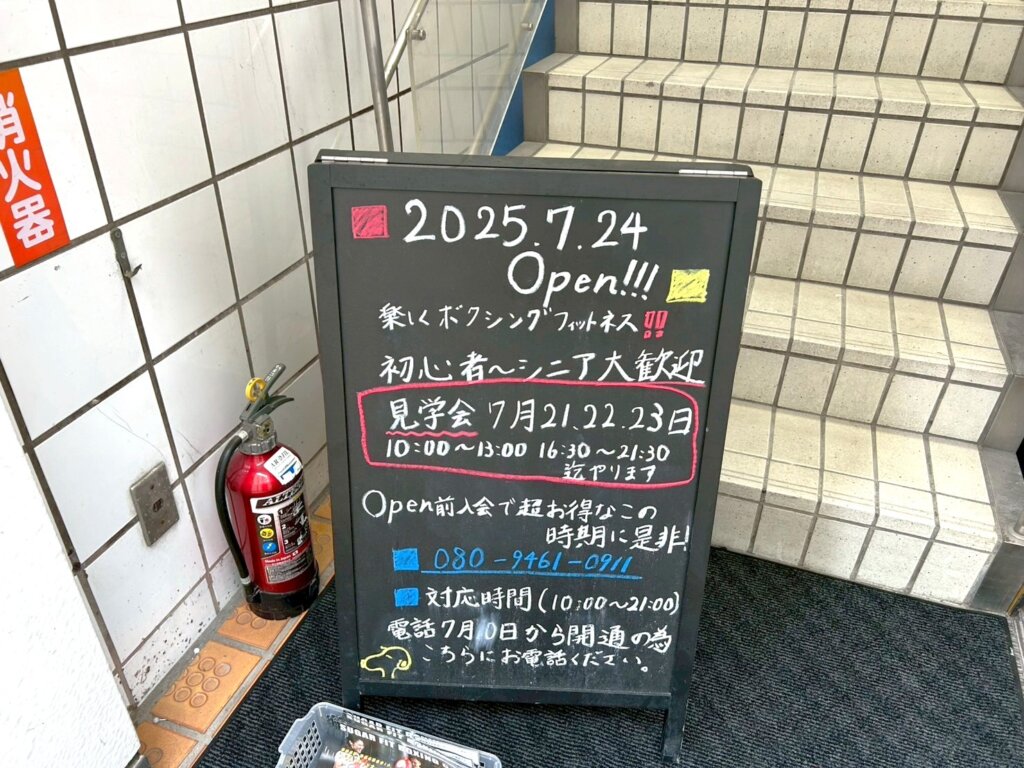 消火器
2025.7.24
Open!!!
楽しくボクシングフィットネス!!
初心者〜シニア大歓迎
見学会 7月21.22.23日
10:00〜13:00 16:30〜21:30
迄やります
Open前入会で超お得なこの
時期に是非!
080-9461-0911
対応時間(10:00〜21:00)
電話7月10日から開通の為
こちらにお電話ください。